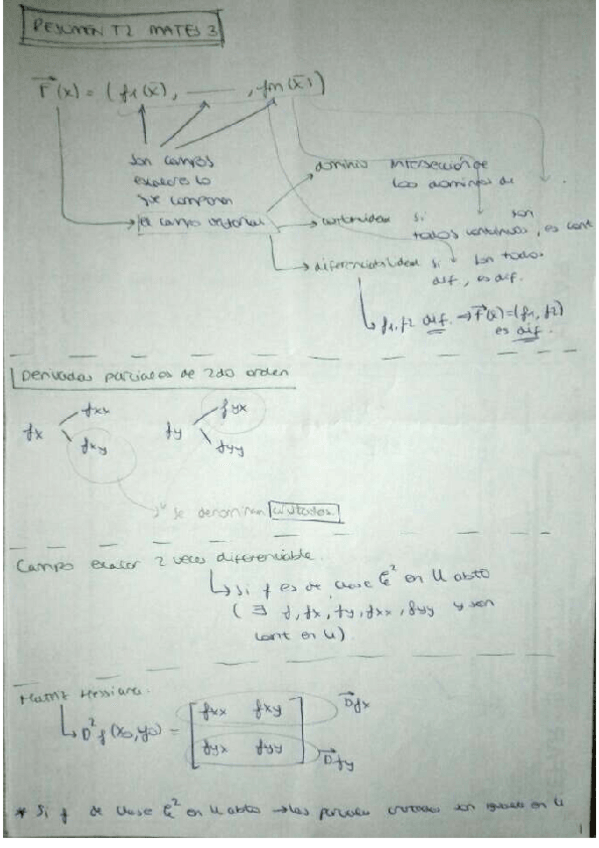 RESUMEN T2 MATES 3
F(x) = (f1(x̄), ——— , fm(x̄))
son campos
escalares
que componen
el campo vectorial
dominio intersección de
los dominios de
continuidad si son
todos continuos, es cont
diferenciabilidad si son todos
dif, es dif.
f1, f2 dif. → F(x) = (f1, f2)
es dif.
Derivadas parciales de 2do orden
fx fxx fxy fy fyx fyy
se denominan cruzadas
Campo escalar 2 veces diferenciable.
si f es de clase C² en U abto
(∃ f, fx, fy, fxx, fyy y son
cont en U)
Matriz Hessiana.
D²f(x0,y0) = [ fxx fxy Dfx
fyx fyy ] Dfy
* Si f de clase C² en U abto → las parciales cruzadas son iguales en U
1